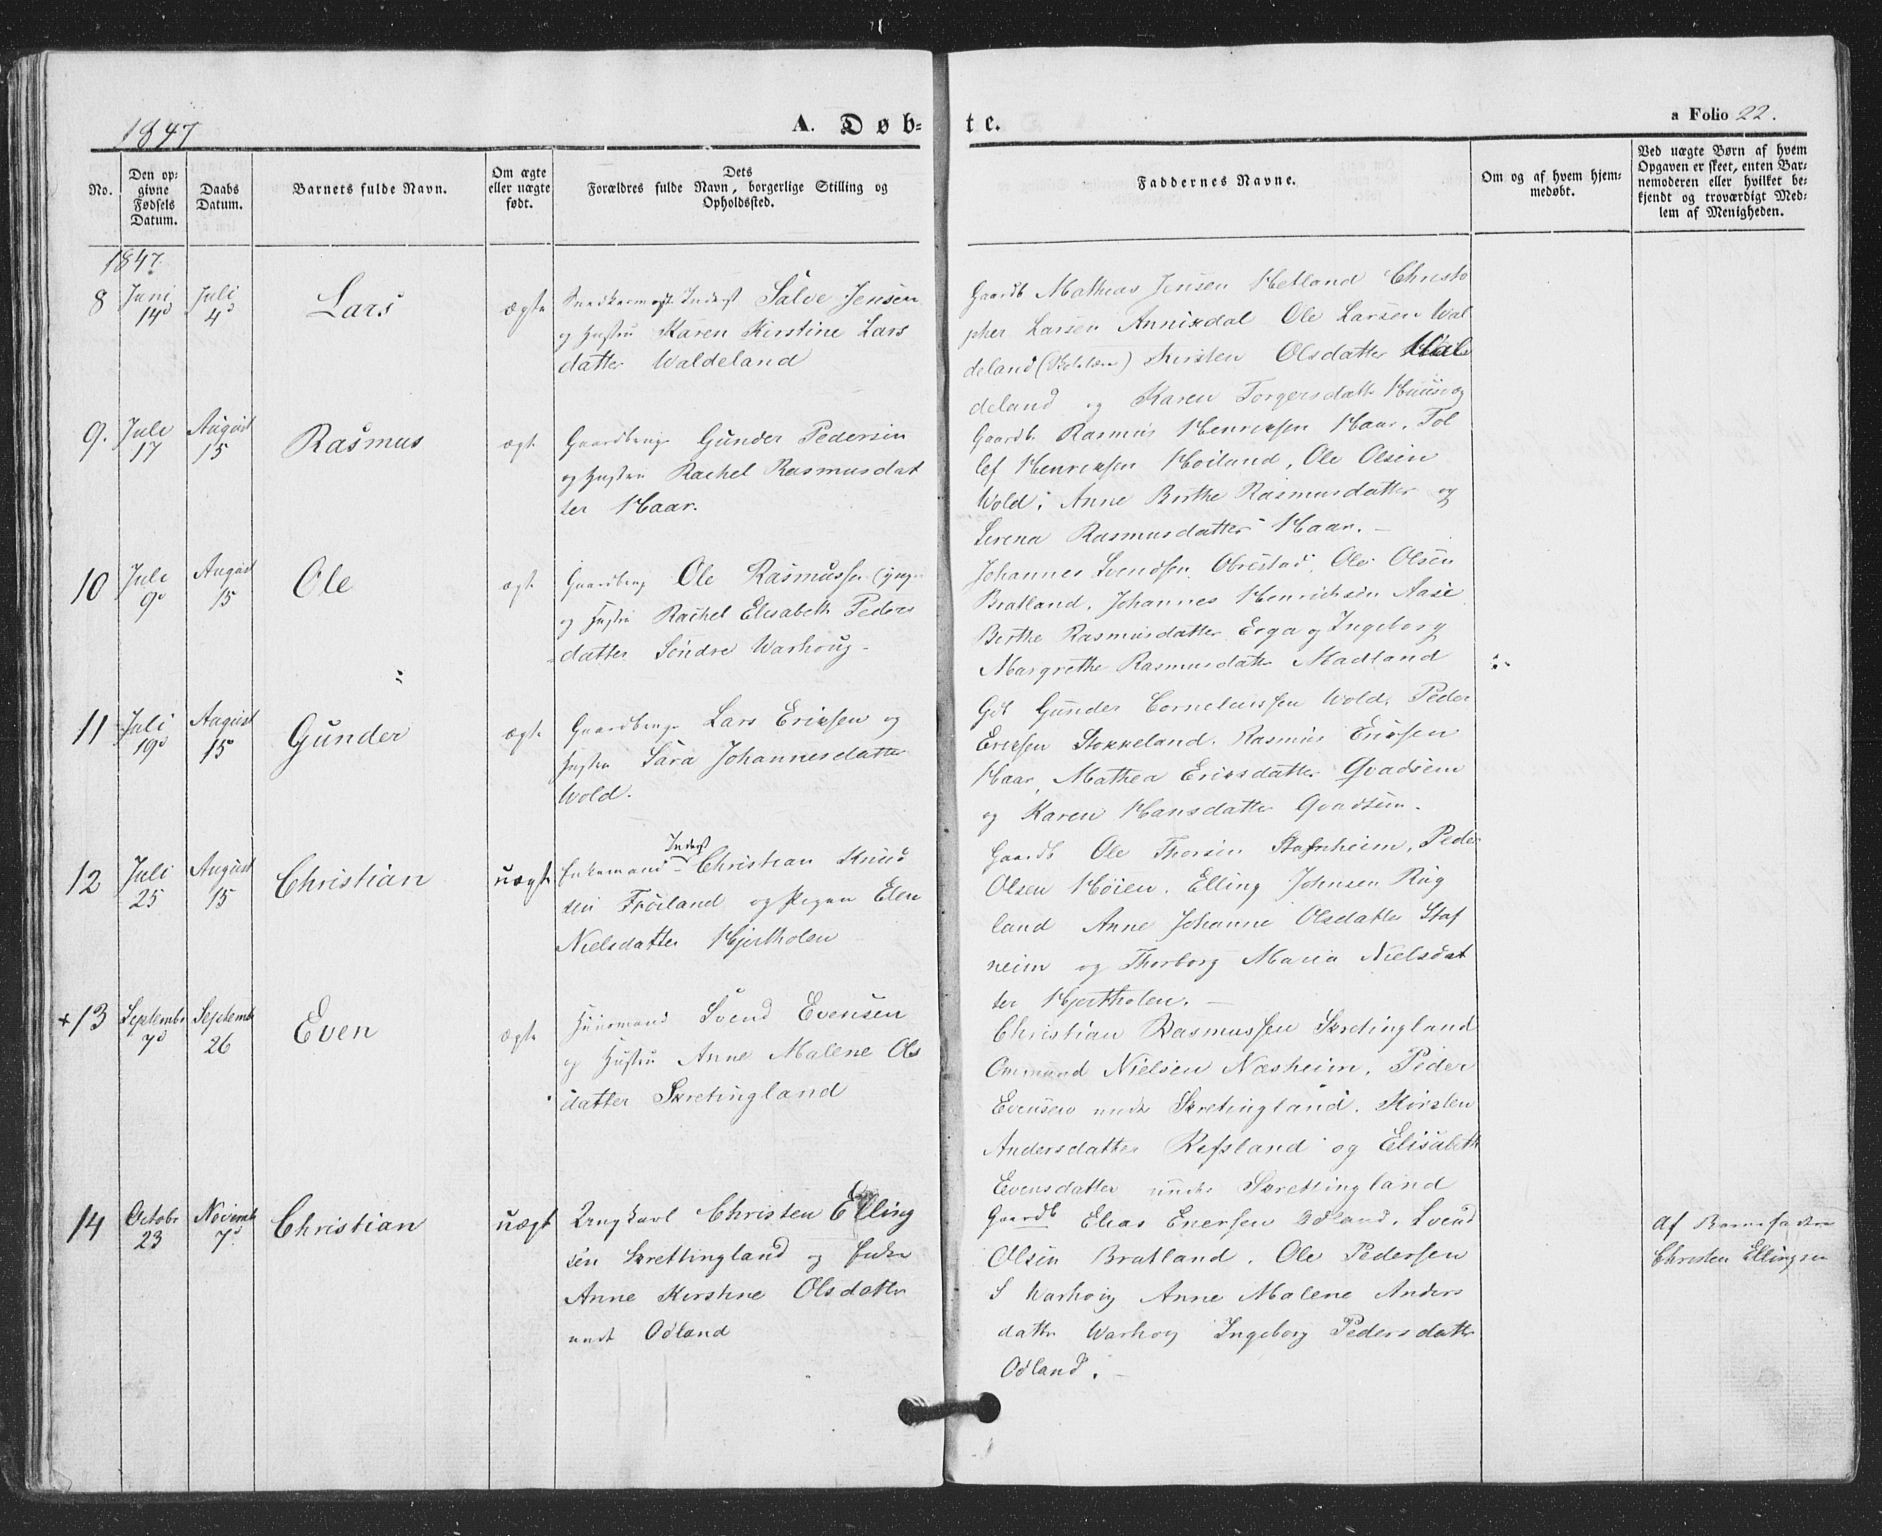 1847
A. Døb-
te.
a Folio 22.
No.
Den op-
givne
Fødsels
Datum.
Daabs
Datum.
Barnets fulde Navn.
Om ægte
eller uægte
født.
Dets
Forældres fulde Navn, borgerlige Stilling og
Opholdssted.
Faddernes Navne.
Om og af hvem hjem-
medøbt.
Ved uægte Børn af hvem
Opgaven er skeet, enten Bar-
nemoderen eller hvilket be-
kjendt og troværdigt Med-
lem af Menigheden.
1847.
8
Juni
14d
Juli
4d
Lars
ægte
Inderst Salve Jensen
og Hustru Karen Kirstine Lars
datter Waldeland
Gaardb Mathias Jensen Hetland Christo
pher Larsen Annixdal Ole Larsen Wal
deland Kirsten Olsdatter Wal
deland og Karen Torgersdatt
9.
Juli
17
August
15
Rasmus
ægte
Gaardbrug Gunder Pedersen
og Hustru Rachel Rasmusdat
ter Haar.
Gaardb. Rasmus Henriksen Haar. Tol
lef Henriksen Høiland, Ole Olsen
Wold. Anne Berthe Rasmusdatter og
Serena Rasmusdatter Haar. -
10
Juli
9d
August
15
Ole
ægte
Gaardbrug Ole Rasmussen (yngr
og Hustru Rachel Elisabeth Peders
datter Søndre Warhoug -
Johannes Svendsen Obrestad, Ole Olsen
Bratland, Johannes Henrichsen Aase
Berthe Rasmusdatter Erga og Ingeborg
Margrethe Rasmusdatter Madland
11
Juli
19d
August
15
Gunder
ægte
Gaardbruger Lars Eriksen og
Hustru Sara Johannesdatter
Wold.
Gdb Gunder Corneliussen Wold, Peder
Eriksen Stokkeland. Rasmus Eriksen
Haar, Mathea Eriksdatter Qvadsem
og Karen Hansdatter Qvadsem.
12
Juli
25
August
15
Christian
uægte
Inderst
Enkemand - Christian Knud
sen Frøiland og Pigen Elen
Nielsdatter Hjertholen
Gaardb Ole Thorsen Stafnheim, Peder
Olsen Høien. Elling Johnsen Rug
land Anne Johanne Olsdatter Staf
neim og Thorborg Maria Nielsdat
ter Hjertholen. -
+13
Septembr
7d
Septemb
26
Even
ægte
Huusmand Svend Evensen
og Hustru Anne Malene Ols
datter Skretingland
Christian Rasmussen Skretingland
Ommund Nielsen Næsheim, Peder
Evensen under Skretingland. Kirsten
Andersdatter Refsland og Elisabeth
Evensdatter under Skrettingland
14
Octobr
23
Novemb
7d
Christian
uægte
Ungkarl Christen Elling
sen Skrettingland og Enke
Anne Kirstine Olsdatter
undr Odland
Gaardb Elias Enersen Odland, Svend
Olsen Bratland. Ole Pedersen
S Warhoug Anne Malene Anders
datter Warhoug Ingeborg Pedersdatter
Odland. -
Af Barnefadren
Christen Ellingsen